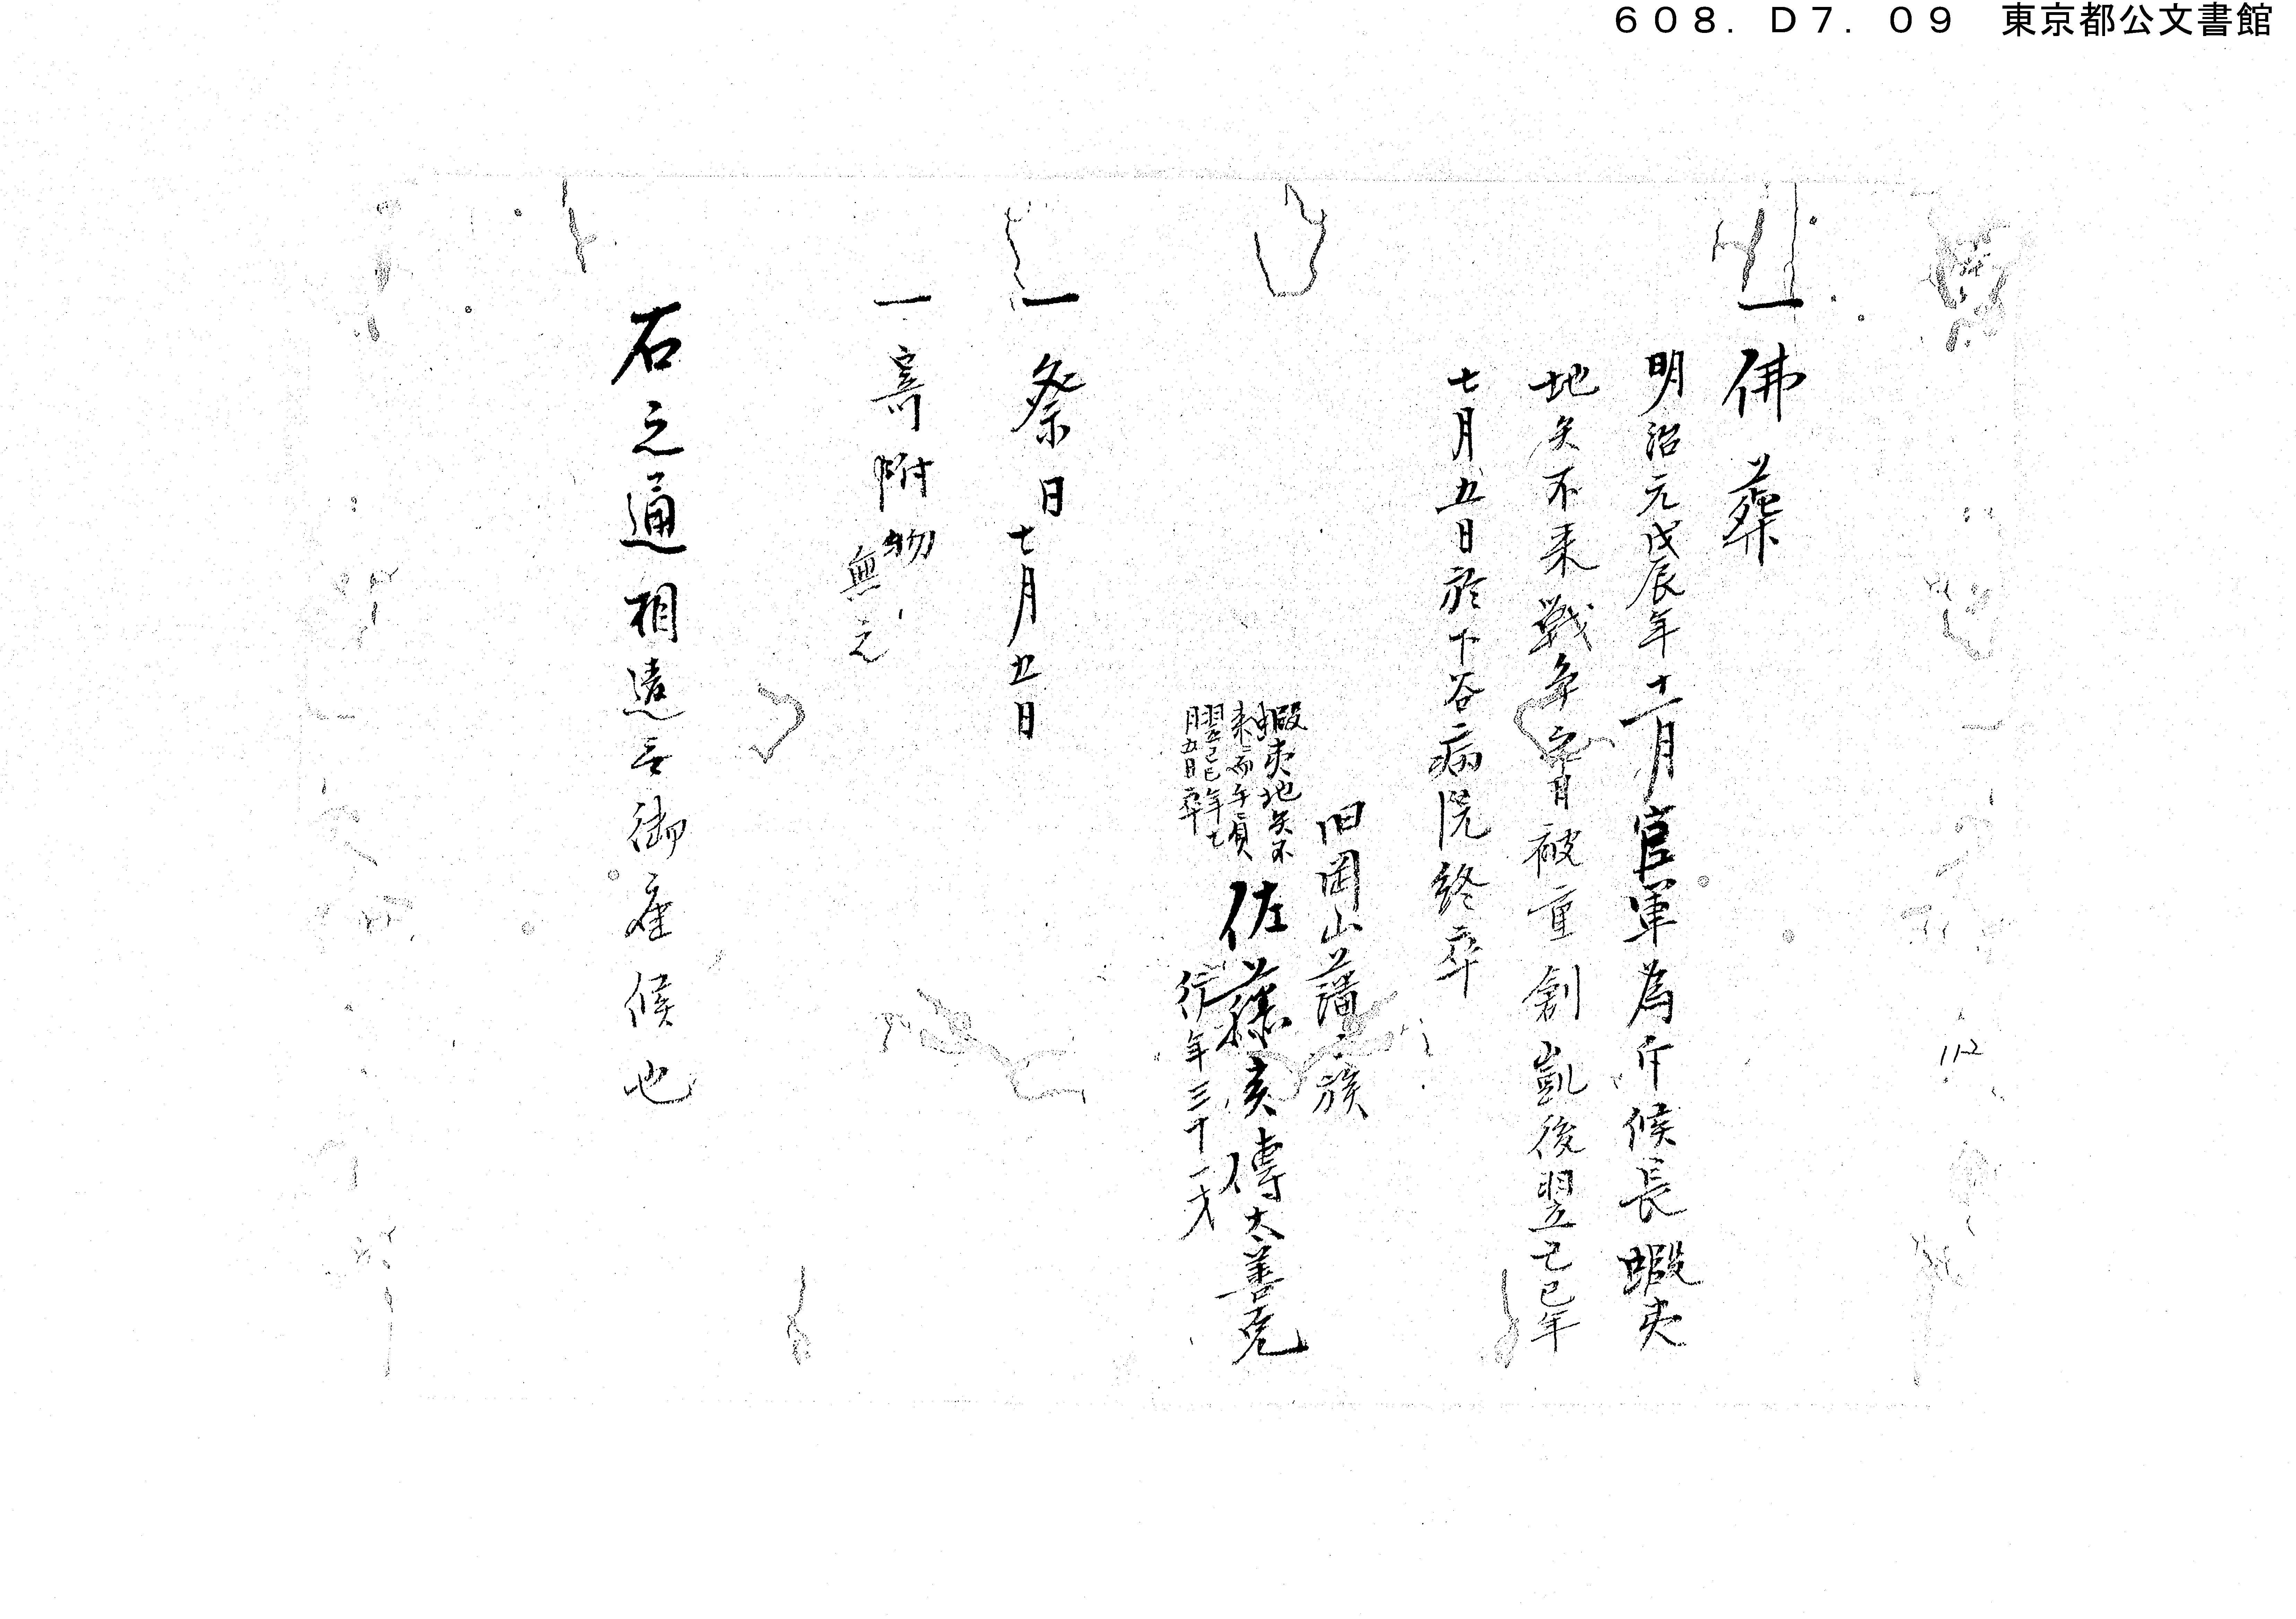 ６０８．Ｄ７．０９　東京都公文書館
一佛葬
明治元戊辰年十一月官軍為斤候長蝦夷
地矢不来戦争之際被重創凱後翌己巳年
七月五日於下谷病院終卒
旧岡山藩士族
蝦夷地矢不
来ニ而手負
翌己巳年七
月五日卒
佐藤傳太善克
行年三十一才
一祭日
七月五日
一寄附物
無之
右之通相違無御座候也
112